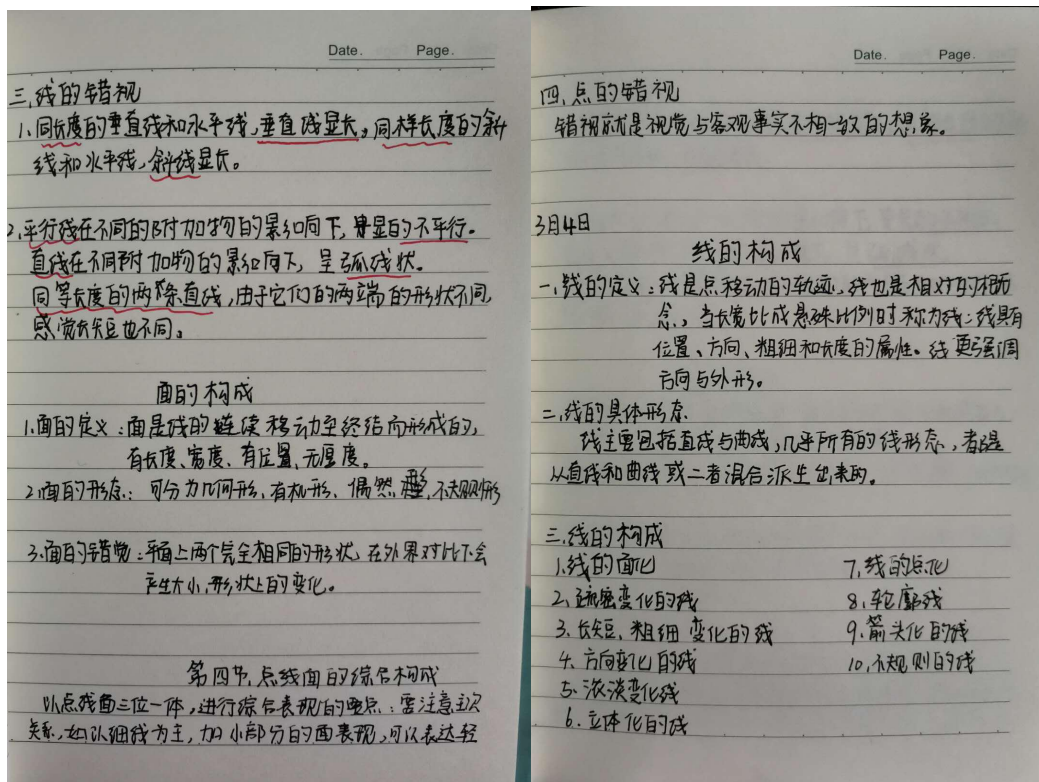 Date. Page.
三、线的错视
1.同长度的垂直线和水平线,垂直线显长。同样长度的斜
线和水平线,斜线显长。
2.平行线在不同的附加物的影响下,显的不平行。
直线在不同附加物的影响下,呈弧线状。
同等长度的两条直线,由于它们的两端的形状不同,
感觉长短也不同。
面的构成
1.面的定义:面是线的连续移动至终结而形成的,
有长度、宽度、有位置、无厚度。
2.面的形态:可分为几何形、有机形、偶然形、不规则形
3.面的错觉:平面上两个完全相同的形状,在外界对比下会
产生大小、形状上的变化。
第四节、点线面的综合构成
以点线面三位一体,进行综合表现的重点:需注意主次
关系,如以细线为主,加小部分的面表现,可以表达轻
Date. Page.
四、点的错视
错视就是视觉与客观事实不相一致的想象。
3月4日
线的构成
一、线的定义:线是点移动的轨迹、线也是相对的概
念,当长宽比成悬殊比例时称为线:线具有
位置、方向、粗细和长度的属性。线更强调
方向与外形。
二、线的具体形态
线主要包括直线与曲线,几乎所有的线形态,都是
从直线和曲线或二者混合派生出来的。
三、线的构成
1.线的面化
2.疏密变化的线
3.长短、粗细变化的线
4.方向变化的线
5.浓淡变化线
6.立体化的线
7.线的点化
8.轮廓线
9.箭头化的线
10.不规则的线